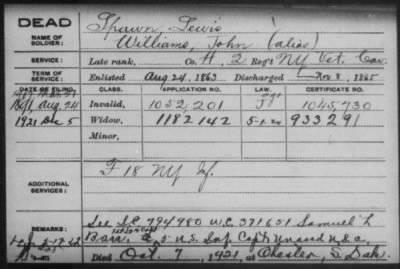 DEAD
NAME OF SOLDIER:
Spawn, Lewis
Williams, John (alias)
SERVICE:
Late rank, Co. H, 2 Reg't NY Vet. Cav.
TERM OF SERVICE:
Enlisted Aug 24, 1863 Discharged Nov 8, 1865
DATE OF FILING. CLASS. APPLICATION NO. LAW. CERTIFICATE NO.
1891, Aug. 24 Invalid, 1052,201 1045730
1921 Dec 5 Widow, 1182142 5-1-20 933291
Minor,
ADDITIONAL SERVICES:
F 18 NY Inf.
REMARKS:
See S.C. 794980 W.C. 371651 Samuel L
5 U.S. Inf. Capt Unassd U.S.A.
Died Oct. 7, 1921, at Chester, S. Dak.